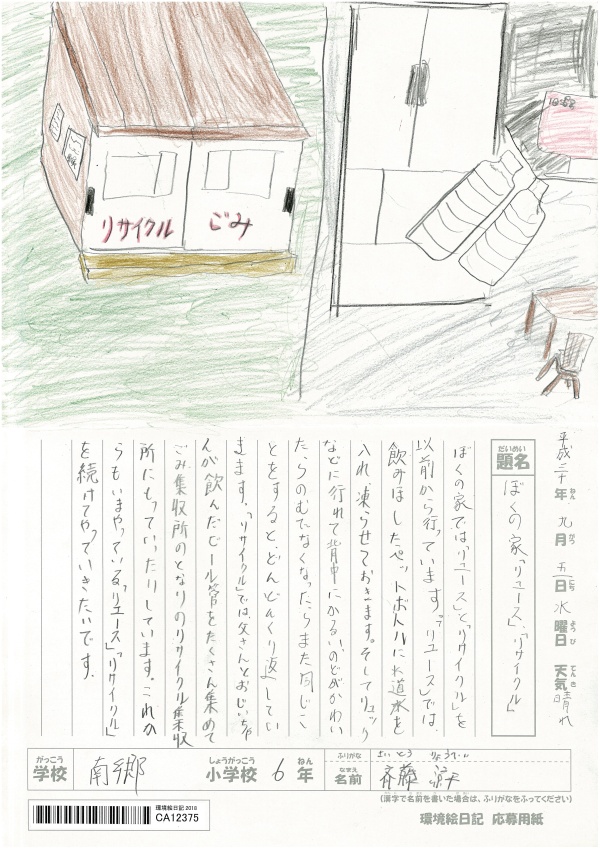 リサイクル
ごみ
10:52
平成三十年 九月 五日 水曜日 天気 晴れ
ねん
がつ
にち
ようび
てんき
だいめい
題名
ぼくの家「リユース」、「リサイクル」
ぼくの家では「リユース」と「リサイクル」を
以前から行っています。「リユース」では、
飲みほしたペットボトルに水道水を
入れ、凍らせておきます。そしてリュック
などに入れて背中にかるい、のどがかわい
たらのむでなくなったらまた同じこ
とをすると、どんどんくり返してい
きます。「リサイクル」では、父さんとおじいちゃ
んが飲んだビール管をたくさん集めて
ごみ集収所のとなりのリサイクル集収
所にもっていったりしています。これか
らもいまやっている、「リユース」「リサイクル」
を続けてやっていきたいです。
がっこう
学校
南郷
しょうがっこう
小学校
6
ねん
年
ふりがな
さいとう
なまえ
名前
斉藤
(漢字で名前を書いた場合は、ふりがなをふってください)
環境絵日記 2018
CA12375
環境絵日記 応募用紙